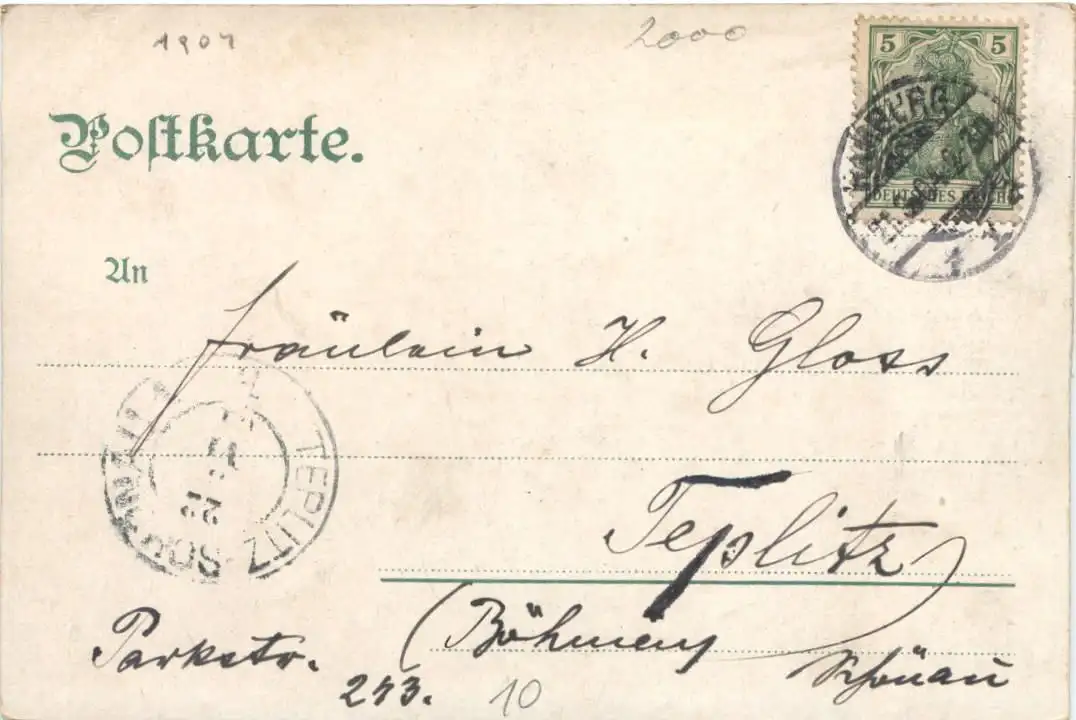 1901
2000
Postkarte.
5 5
DEUTSCHES REICH
HAMBURG
1
An
Fräulein H. Gloss
TEPLITZ-SCHÖNAU
22
Teplitz
(Böhmen)
Schönau
Parkstr.
243.
10